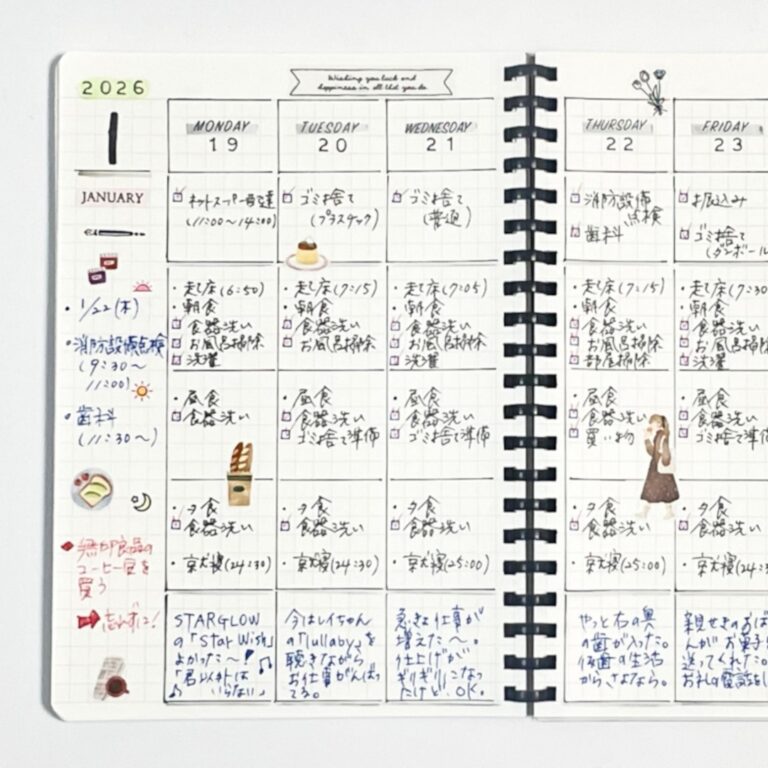 2026
Wishing you luck and
happiness in all that you do
1
JANUARY
・1/22(木)
・消防設備点検
(9:30〜
11:00)
・歯科
(11:30〜)
無印良品の
コーヒー豆を
買う
➡忘れずに!
MONDAY
19
ネットスーパー
(11:00〜14:00)
・起床(6:50)
・朝食
食器洗い
お風呂掃除
洗濯
・昼食
食器洗い
・夕食
食器洗い
・就寝(24:30)
STARGLOW
の「Star Wish」
よかった〜!
「君以外は
いらない」
TUESDAY
20
ゴミ捨て
(プラスチック)
・起床(7:15)
・朝食
食器洗い
お風呂掃除
・昼食
食器洗い
ゴミ捨て準備
・夕食
食器洗い
・就寝(24:30)
今はレイちゃん
の「lullaby」を
聴きながら
お仕事がんばっ
てる。
WEDNESDAY
21
ゴミ捨て
(普通)
・起床(7:05)
・朝食
食器洗い
お風呂掃除
洗濯
・昼食
食器洗い
ゴミ捨て準備
・夕食
食器洗い
・就寝(25:00)
急きょ仕事が
増えた〜。
仕上げが
ギリギリになっ
たけど、OK。
THURSDAY
22
消防設備
点検
歯科
・起床(7:15)
・朝食
食器洗い
お風呂掃除
部屋掃除
・昼食
食器洗い
買い物
・夕食
食器洗い
・就寝(25:00)
やっと右の奥
の歯が入った。
仮歯の生活
からさよなら。
FRIDAY
23
お振込み
ゴミ捨て
(ダンボール
・起床(7:30
・朝食
食器洗い
お風呂掃除
洗濯
・昼食
食器洗い
ゴミ捨て準備
・夕食
食器洗い
・就寝(24:3
親せきのおば
んがお菓子
送ってくれた。
お礼の電話を